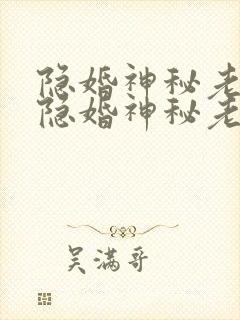 隐婚神秘老
隐婚神秘老
吴满哥